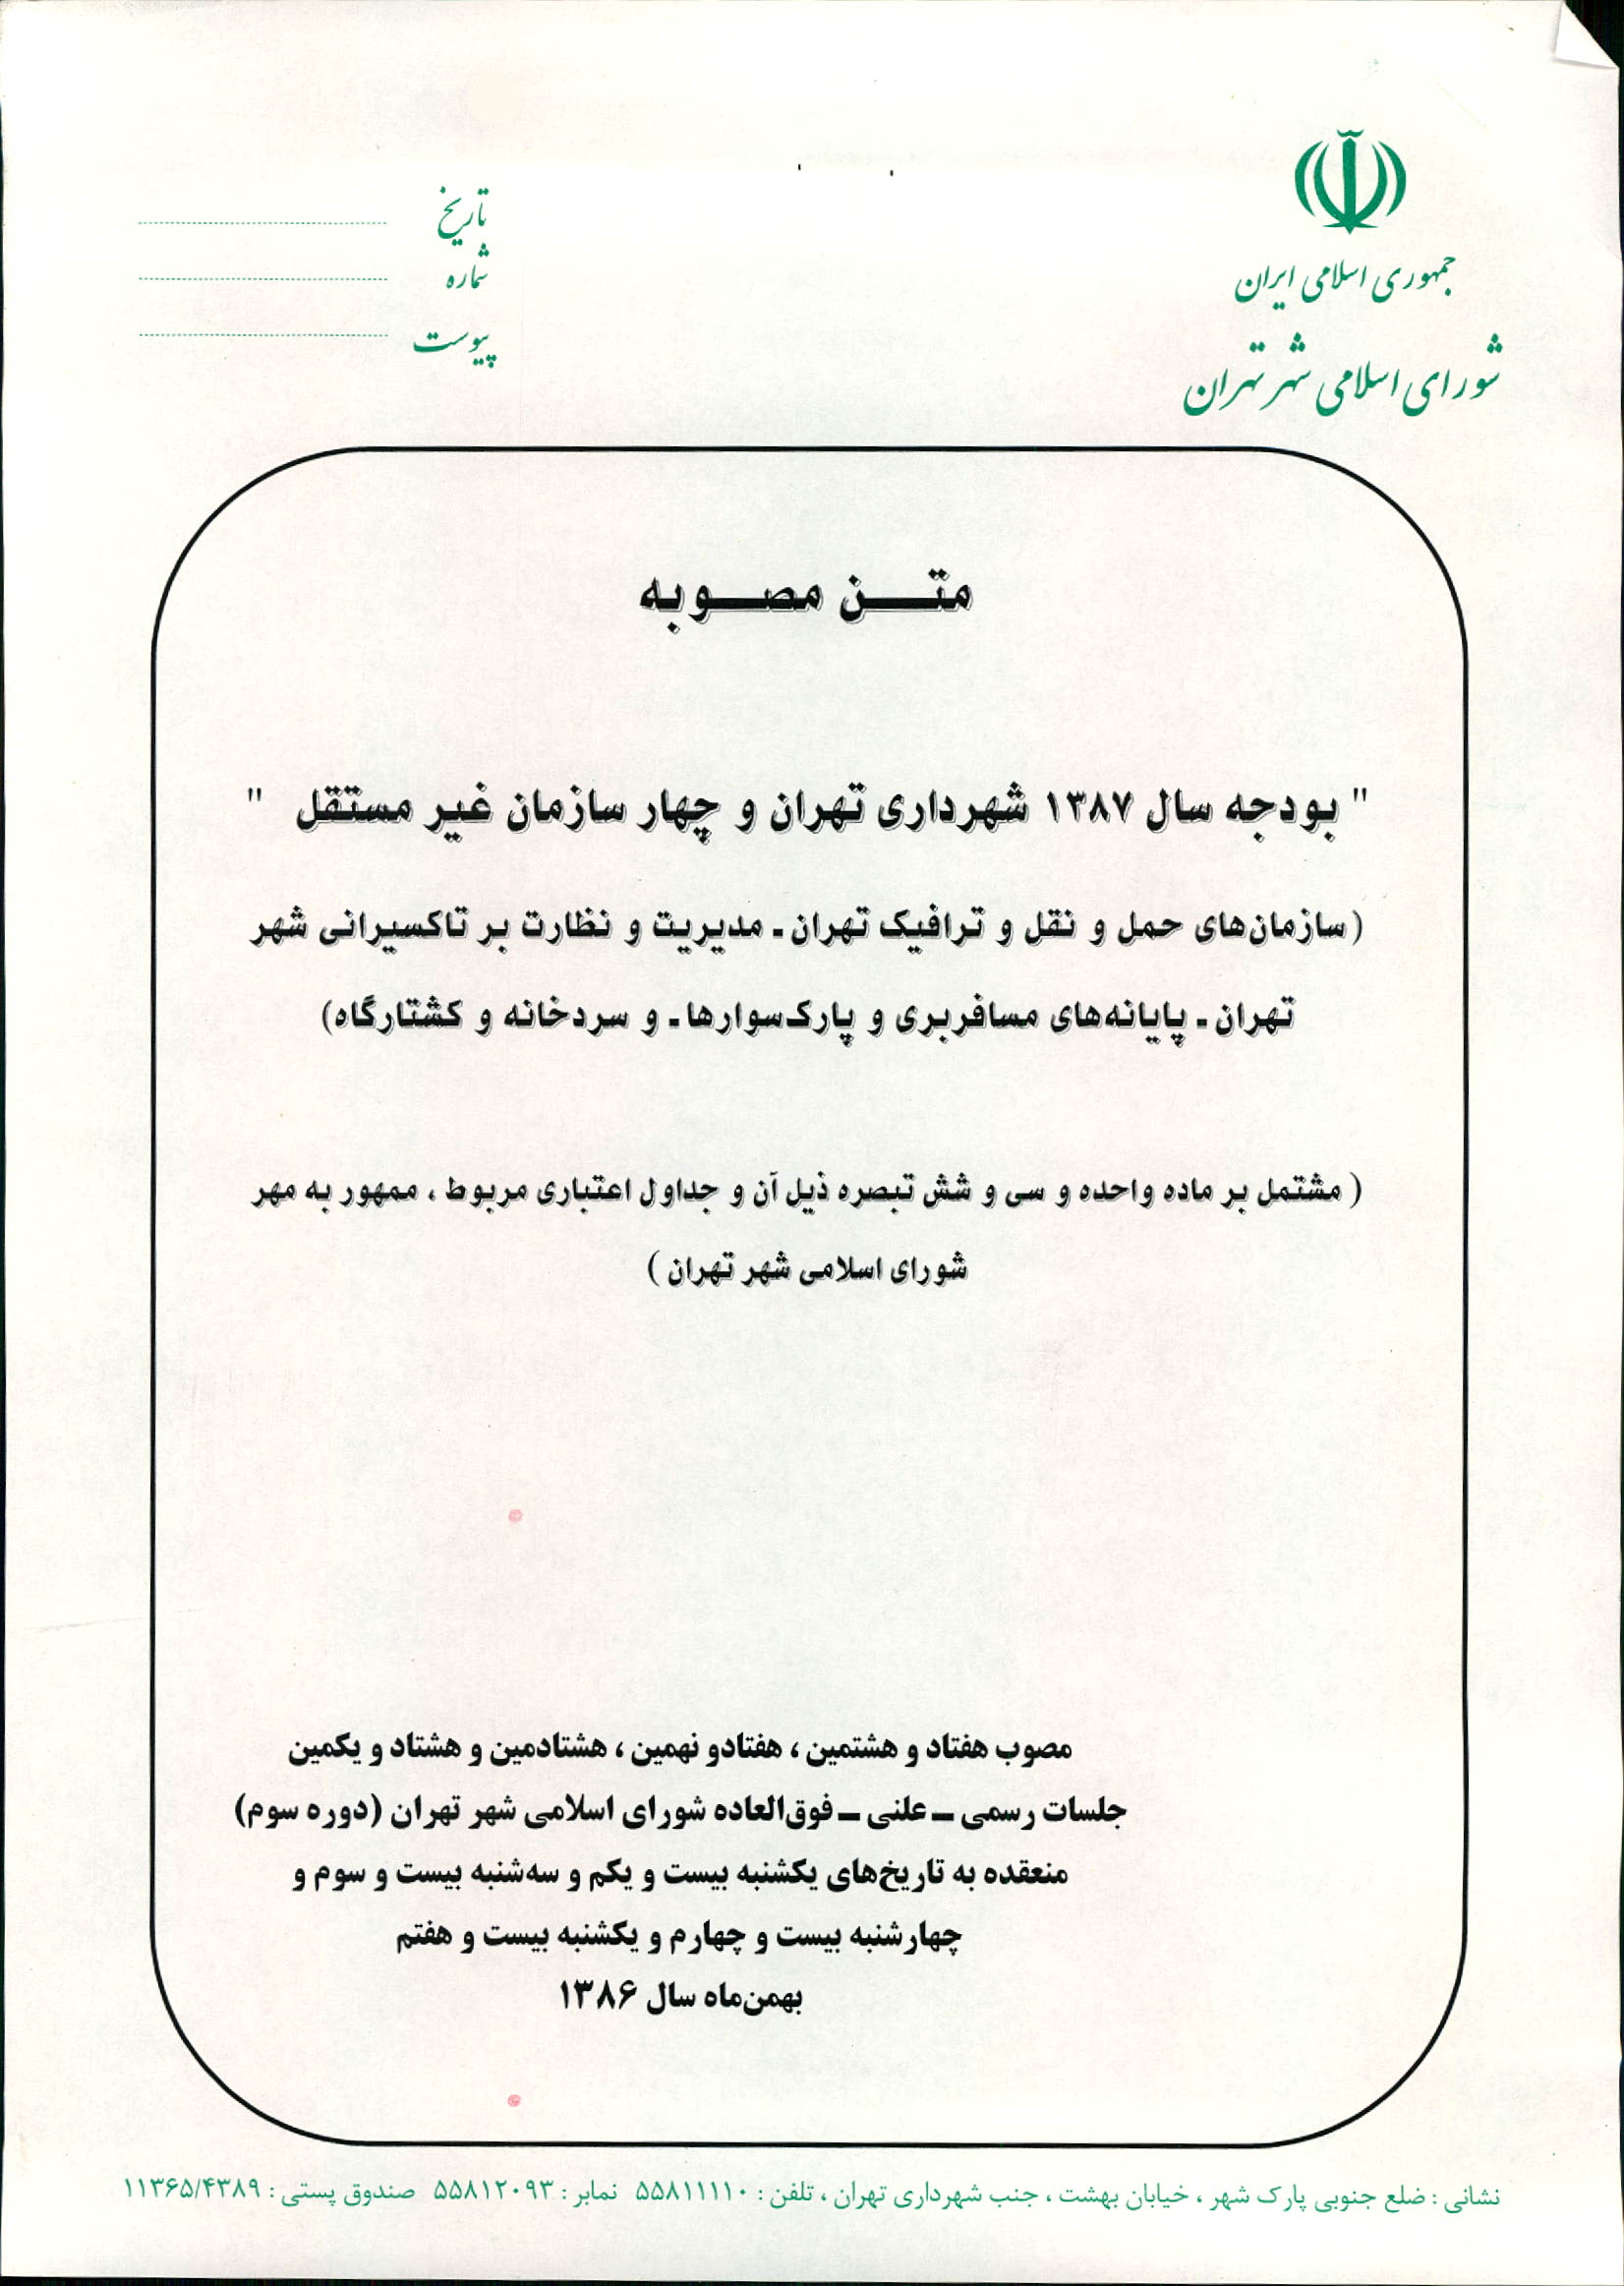 جمهوری اسلامی ایران
شورای اسلامی شهر تهران
تاریخ
شماره
پیوست
متن مصوبه
" بودجه سال ۱۳۸۷ شهرداری تهران و چهار سازمان غیر مستقل "
(سازمان‌های حمل و نقل و ترافیک تهران ـ مدیریت و نظارت بر تاکسیرانی شهر
تهران ـ پایانه‌های مسافربری و پارک‌سوارها ـ و سردخانه و کشتارگاه)
( مشتمل بر ماده واحده و سی و شش تبصره ذیل آن و جداول اعتباری مربوط ، ممهور به مهر
شورای اسلامی شهر تهران )
مصوب هفتاد و هشتمین ، هفتادو نهمین ، هشتادمین و هشتاد و یکمین
جلسات رسمی ــ علنی ــ فوق‌العاده شورای اسلامی شهر تهران (دوره سوم)
منعقده به تاریخ‌های یکشنبه بیست و یکم و سه‌شنبه بیست و سوم و
چهارشنبه بیست و چهارم و یکشنبه بیست و هفتم
بهمن‌ماه سال ۱۳۸۶
نشانی : ضلع جنوبی پارک شهر ، خیابان بهشت ، جنب شهرداری تهران ، تلفن : ۵۵۸۱۱۱۱۰ نمابر : ۵۵۸۱۲۰۹۳ صندوق پستی : ۱۱۳۶۵/۴۳۸۹